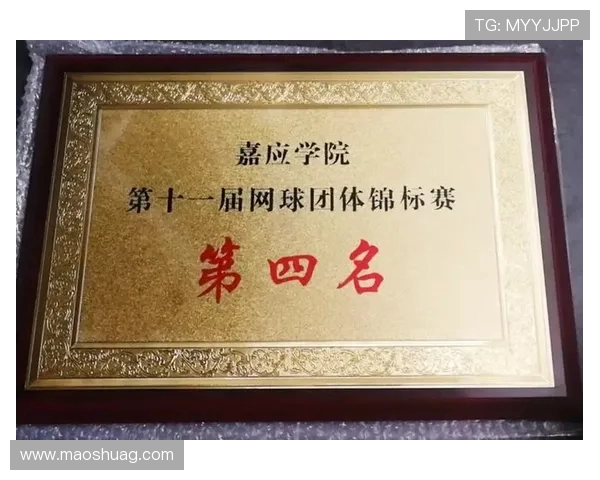 TG: MYYJJPP
嘉应学院
第十一届网球团体锦标赛
第四名
www.maoshuag.com